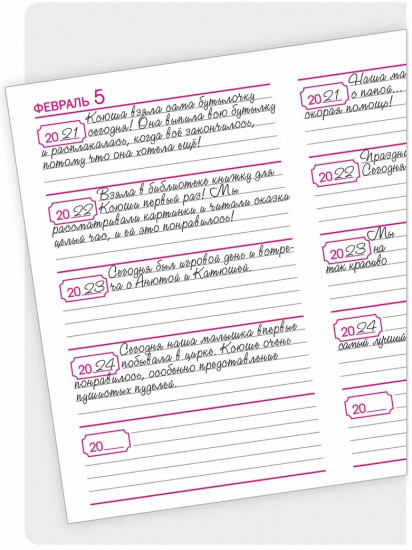 ФЕВРАЛЬ 5
2021 Ксюша взяла сама бутылочку
сегодня! Она выпила всю бутылку
и расплакалась, когда всё закончилось,
потому что она хотела ещё!
2022 Взяла в библиотеке книжку для
Ксюши первый раз! Мы
рассматривали картинки и читали сказки
целый час, и ей это понравилось!
2023 Сегодня был игровой день и встре-
ча с Анютой и Катюшей.
2024 Сегодня наша малышка впервые
побывала в цирке. Ксюше очень
понравилось, особенно представление
пушистых пуделей.
20
2021 Наша ма
с папой...
скорая помощь!
2022 Праздни
Сегодня
2023 Мы
на
так красиво
2024
самый лучший
20